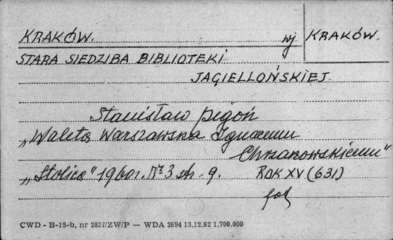 KRAKÓW. wj KRAKÓW.
STARA SIEDZIBA BIBLIOTEKI
JAGIELLOŃSKIEJ
Stanisław Pigoń
„Waleta Warszawska Ignacemu
Chrzanowskiemu”
„Stolica” 1960r. Nr 3 str. 9. ROK XV (631)
fot
CWD - B-15-b, nr 2827/ZW/P — WDA 2694 13.12.62 1.700.000